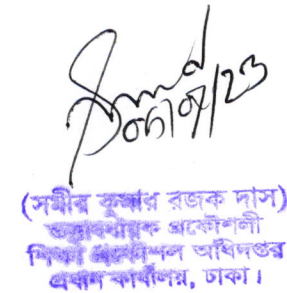 (সমীর কুমার রজক দাস)
তত্ত্বাবধায়ক প্রকৌশলী
শিক্ষা প্রকৌশল অধিদপ্তর
প্রধান কার্যালয়, ঢাকা।